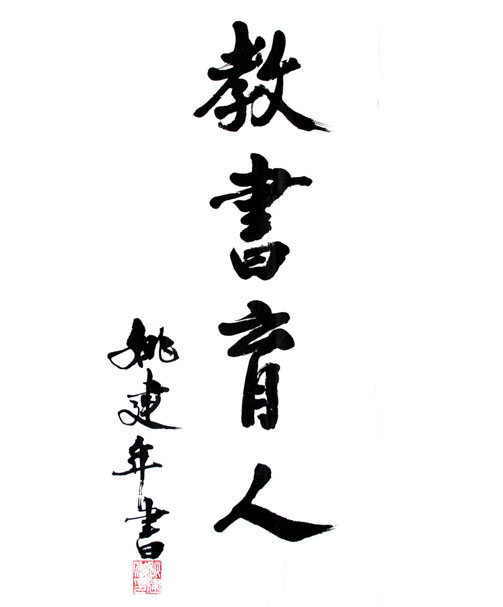 教書育人
姚建年書